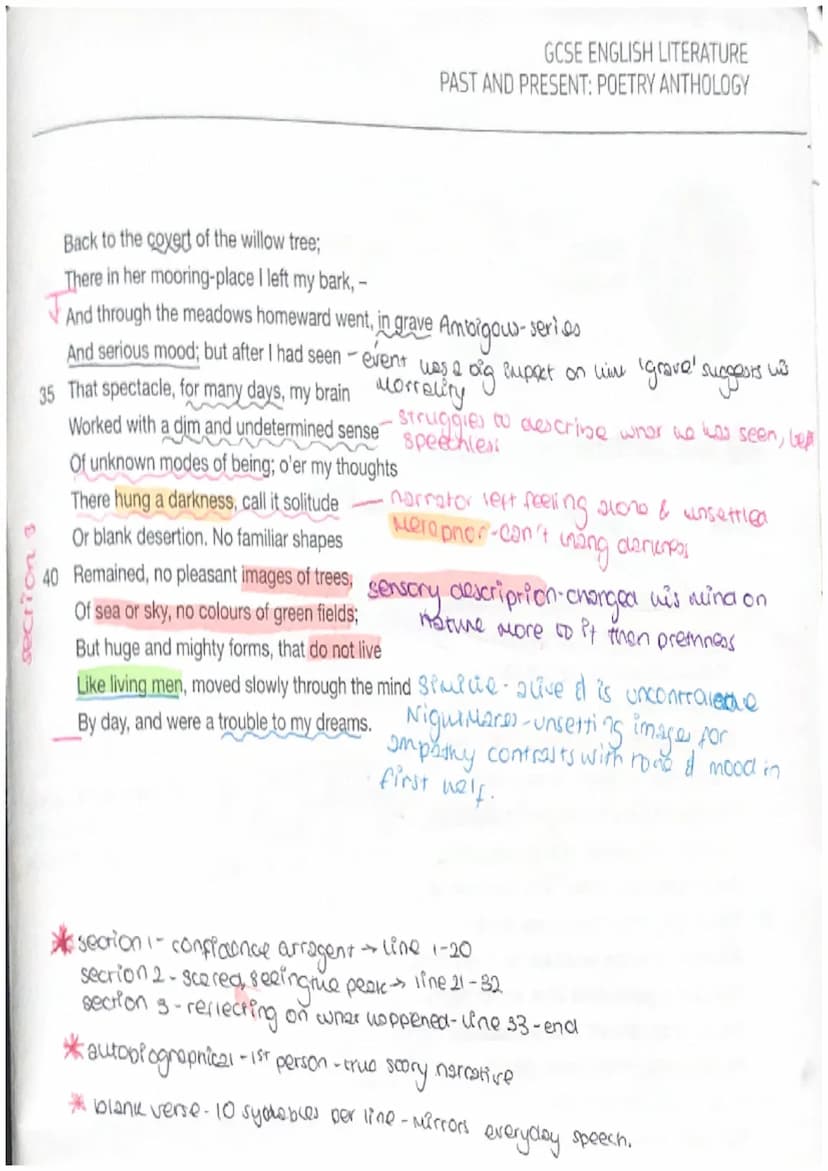 GCSE ENGLISH LITERATURE
PAST AND PRESENT: POETRY ANTHOLOGY
Back to the covert of the willow tree;
There in her mooring-place I left my bark, –
And through the meadows homeward went, in grave Ambigous-series
And serious mood; but after I had seen – event was a big impact on him 'grave' suggests his
35 That spectacle, for many days, my brain morrality
Worked with a dim and undetermined sense – struggles to describe what he has seen, left
speechless
Of unknown modes of being; o'er my thoughts
There hung a darkness, call it solitude – narrator left feeling alone & unsettled
Or blank desertion. No familiar shapes Metaphor-can't hang darkness
section 3
40 Remained, no pleasant images of trees, sensory description-changed his mind on
Of sea or sky, no colours of green fields; nature more to it then prettness
But huge and mighty forms, that do not live
Like living men, moved slowly through the mind Simile - alive & is
By day, and were a trouble to my dreams. Nightmares-unsetting image for
empathy contrasts with tone & mood in
first half.
* section 1- confidence arrogent → line 1-20
section 2 - scared, seeing the peak → line 21-32
section 3 - reflecting on what happened- line 33-end
* autobiographical - 1st person -true story narrative
* blank verse - 10 syllables per line - mirrors everyday speech.